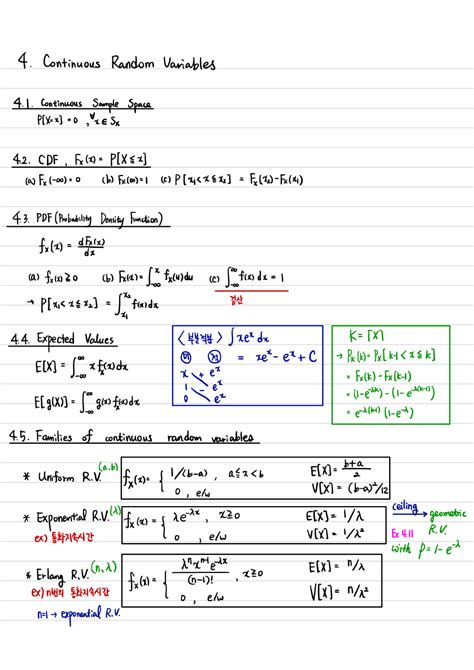 4. Continuous Random Variables
4.1. Continuous Sample Space
P[X=x] = 0 , ∀x ∈ Sx
4.2. CDF , Fx(x) = P[X ≤ x]
(a) Fx(-∞) = 0 (b) Fx(∞) = 1 (c) P[x₁ < X ≤ x₂] = Fx(x₂) - Fx(x₁)
4.3. PDF (Probability Density Function)
fx(x) = dFx(x)/dx
(a) fx(x) ≥ 0 (b) Fx(x) = ∫_{-∞}^{x} fx(u) du (c) ∫_{-∞}^{∞} f(x) dx = 1
검산
→ P[x₁ < X ≤ x₂] = ∫_{x₁}^{x₂} f(x) dx
4.4. Expected Values
E[X] = ∫_{-∞}^{∞} x fx(x) dx
E[g(X)] = ∫_{-∞}^{∞} g(x) fx(x) dx
<부분적분> ∫ xeˣ dx
= xeˣ - eˣ + C
x + eˣ
1 - eˣ
0 eˣ
K = ⌈X⌉
→ Pk(k) = Px[k-1 < X ≤ k]
= Fx(k) - Fx(k-1)
= (1-e^{-λk}) - (1-e^{-λ(k-1)})
= e^{-λ(k-1)} (1-e^{-λ})
4.5. Families of continuous random variables
* Uniform R.V. (a.b) fx(x) = { 1/(b-a) , a ≤ x < b E[X] = (b+a)/2
0 , e/w V[X] = (b-a)²/12
* Exponential R.V. (λ) fx(x) = { λe^{-λx} , x ≥ 0 E[X] = 1/λ
ex) 통화지속시간 0 , e/w V[X] = 1/λ²
ceiling → geometric R.V.
Ex 4.11
with p = 1-e^{-λ}
* Erlang R.V. (n, λ) fx(x) = { λⁿxⁿ⁻¹e^{-λx}/(n-1)! , x ≥ 0 E[X] = n/λ
ex) n번의 통화지속시간 0 , e/w V[X] = n/λ²
n=1 → exponential R.V.